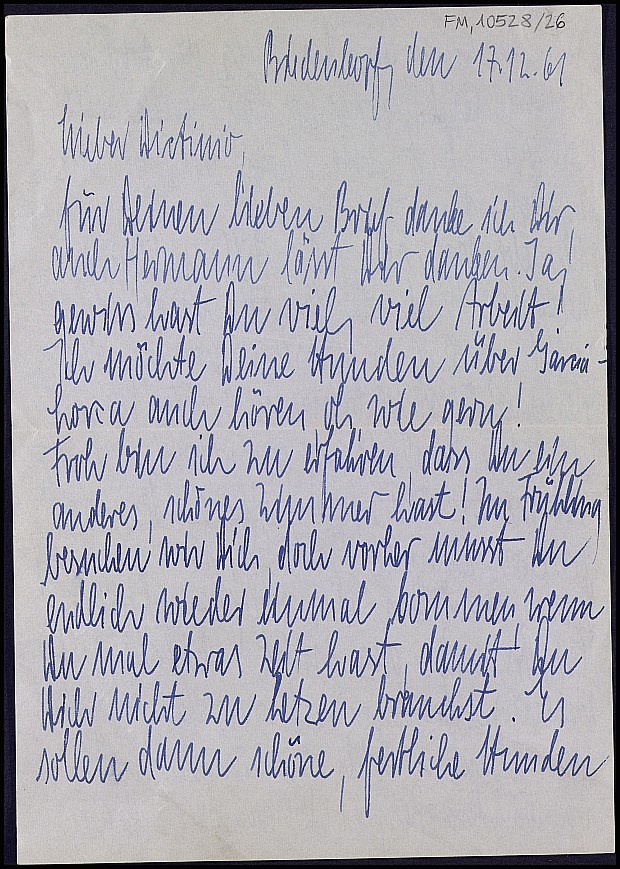 FM, 10528/26
Biedenkopf, den 17.12.61
Lieber Dictinio,
für Deinen lieben Brief danke ich Dir,
auch Hermann lässt Dir danken. Ja,
gewiss hast Du viel, viel Arbeit!
Ich möchte Deine Stunden über Garcia-
Lorca auch hören, oh, wie gern!
Froh bin ich zu erfahren, dass Du ein
anderes, schönes Zimmer hast! Im Frühling
besuchen wir Dich, doch vorher musst Du
endlich wieder einmal kommen, wenn
Du mal etwas Zeit hast, damit Du
Dich nicht zu hetzen brauchst. Es
sollen dann schöne, festliche Stunden